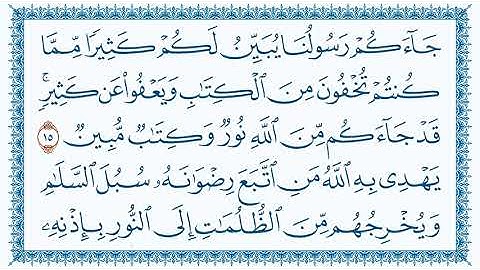 جَآءَكُمْ رَسُولُنَا يُبَيِّنُ لَكُمْ كَثِيرًا مِّمَّا
كُنتُمْ تُخْفُونَ مِنَ ٱلْكِتَٰبِ وَيَعْفُوا۟ عَن كَثِيرٍ ۚ
قَدْ جَآءَكُم مِّنَ ٱللَّهِ نُورٌ وَكِتَٰبٌ مُّبِينٌ ١٥
يَهْدِى بِهِ ٱللَّهُ مَنِ ٱتَّبَعَ رِضْوَٰنَهُۥ سُبُلَ ٱلسَّلَٰمِ
وَيُخْرِجُهُم مِّنَ ٱلظُّلُمَٰتِ إِلَى ٱلنُّورِ بِإِذْنِهِۦ